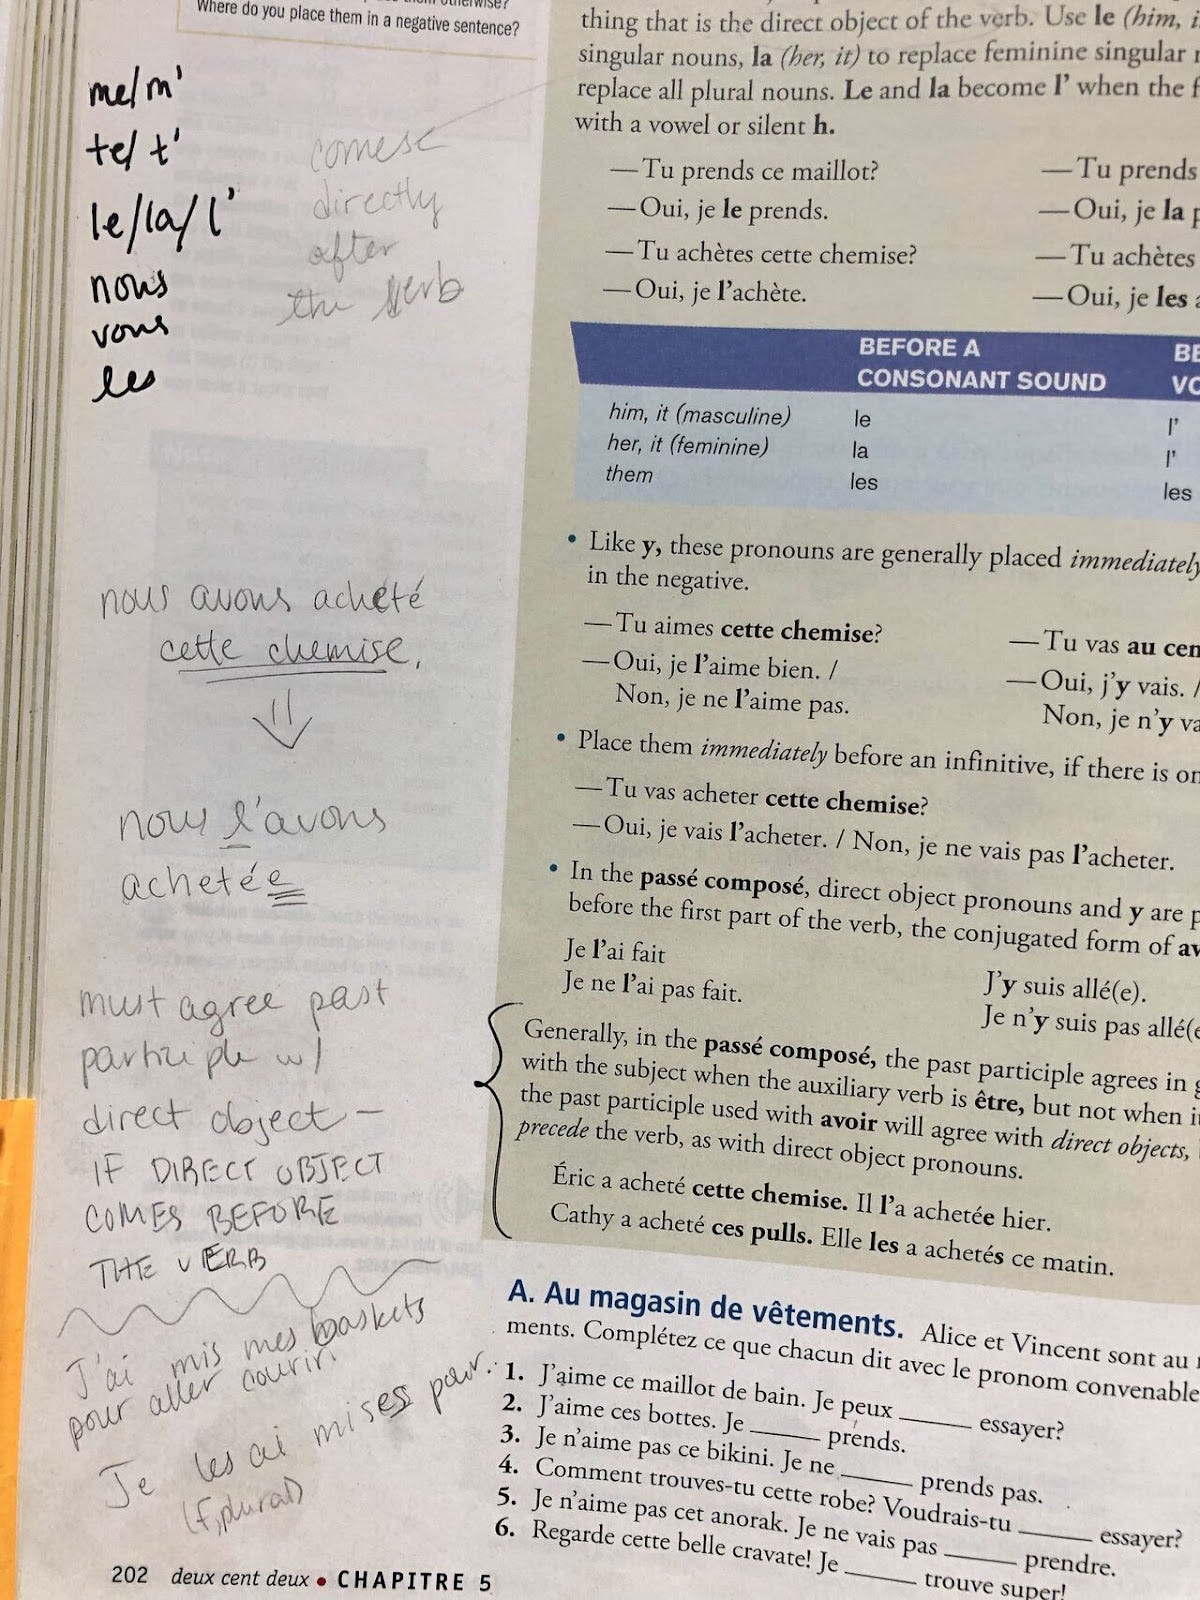 Where do you place them in a negative sentence?
me/m'
te/ t'
le/la/l'
nous
vous
les
comes
directly
after
the verb
nous avons acheté
cette chemise.
nous l'avons
achetée
must agree past
participle w/
direct object —
IF DIRECT OBJECT
COMES BEFORE
THE VERB
J'ai mis mes baskets
pour aller courir.
Je les ai mises pour..
(f, plural)
202 deux cent deux • CHAPITRE 5
thing that is the direct object of the verb. Use le (him,
singular nouns, la (her, it) to replace feminine singular
replace all plural nouns. Le and la become l' when the
with a vowel or silent h.
—Tu prends ce maillot? —Tu prends
—Oui, je le prends. —Oui, je la
—Tu achètes cette chemise? —Tu achètes
—Oui, je l'achète. —Oui, je les
BEFORE A
CONSONANT SOUND
him, it (masculine) le l'
her, it (feminine) la l'
them les les
• Like y, these pronouns are generally placed immediately
in the negative.
—Tu aimes cette chemise? —Tu vas au cen
—Oui, je l'aime bien. / —Oui, j'y vais. /
Non, je ne l'aime pas. Non, je n'y va
• Place them immediately before an infinitive, if there is
—Tu vas acheter cette chemise?
—Oui, je vais l'acheter. / Non, je ne vais pas l'acheter.
• In the passé composé, direct object pronouns and y are
before the first part of the verb, the conjugated form of av
Je l'ai fait J'y suis allé(e).
Je ne l'ai pas fait. Je n'y suis pas allé(e
Generally, in the passé composé, the past participle agrees in
with the subject when the auxiliary verb is être, but not when
the past participle used with avoir will agree with direct objects,
precede the verb, as with direct object pronouns.
Éric a acheté cette chemise. Il l'a achetée hier.
Cathy a acheté ces pulls. Elle les a achetés ce matin.
A. Au magasin de vêtements. Alice et Vincent sont au
ments. Complétez ce que chacun dit avec le pronom convenable
1. J'aime ce maillot de bain. Je peux ______ essayer?
2. J'aime ces bottes. Je ______ prends.
3. Je n'aime pas ce bikini. Je ne ______ prends pas.
4. Comment trouves-tu cette robe? Voudrais-tu ______ essayer?
5. Je n'aime pas cet anorak. Je ne vais pas ______ prendre.
6. Regarde cette belle cravate! Je ______ trouve super!